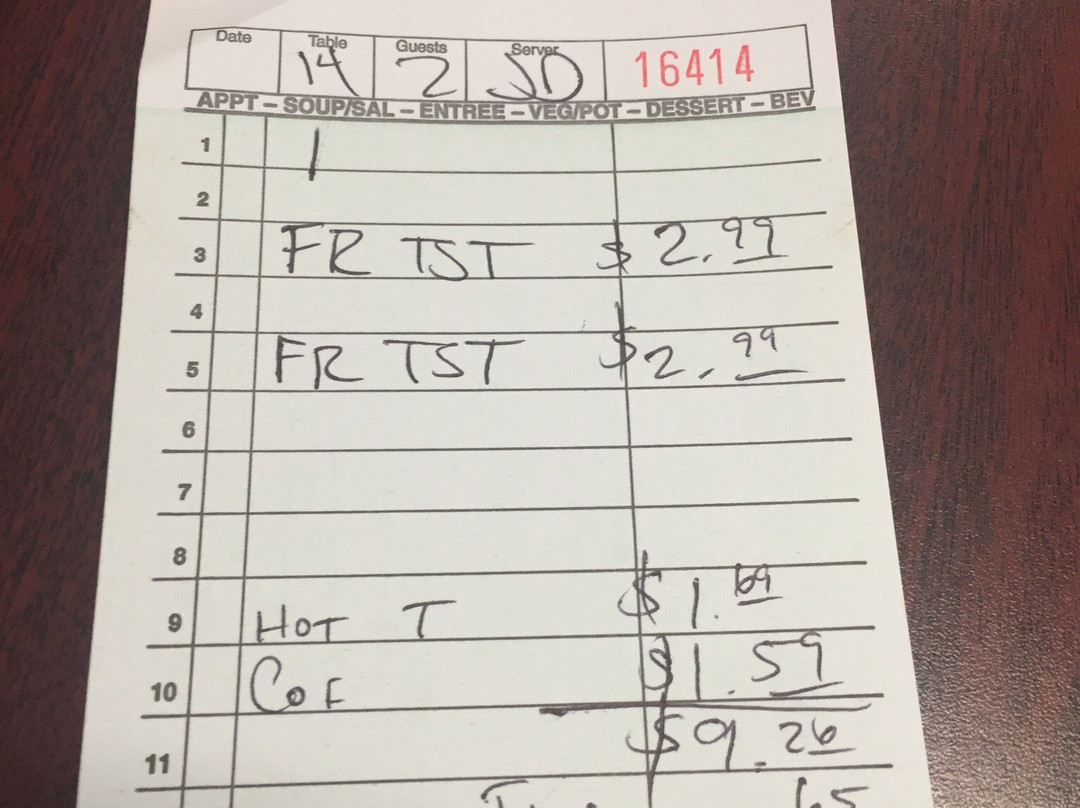 Date Table Guests Server
14 2 JD 16414
APPT – SOUP/SAL – ENTREE – VEG/POT – DESSERT – BEV
1 1
2
3 FR TST $2.99
4
5 FR TST $2.99
6
7
8
9 HOT T $1.69
10 COF $1.59
11 $9.26
65